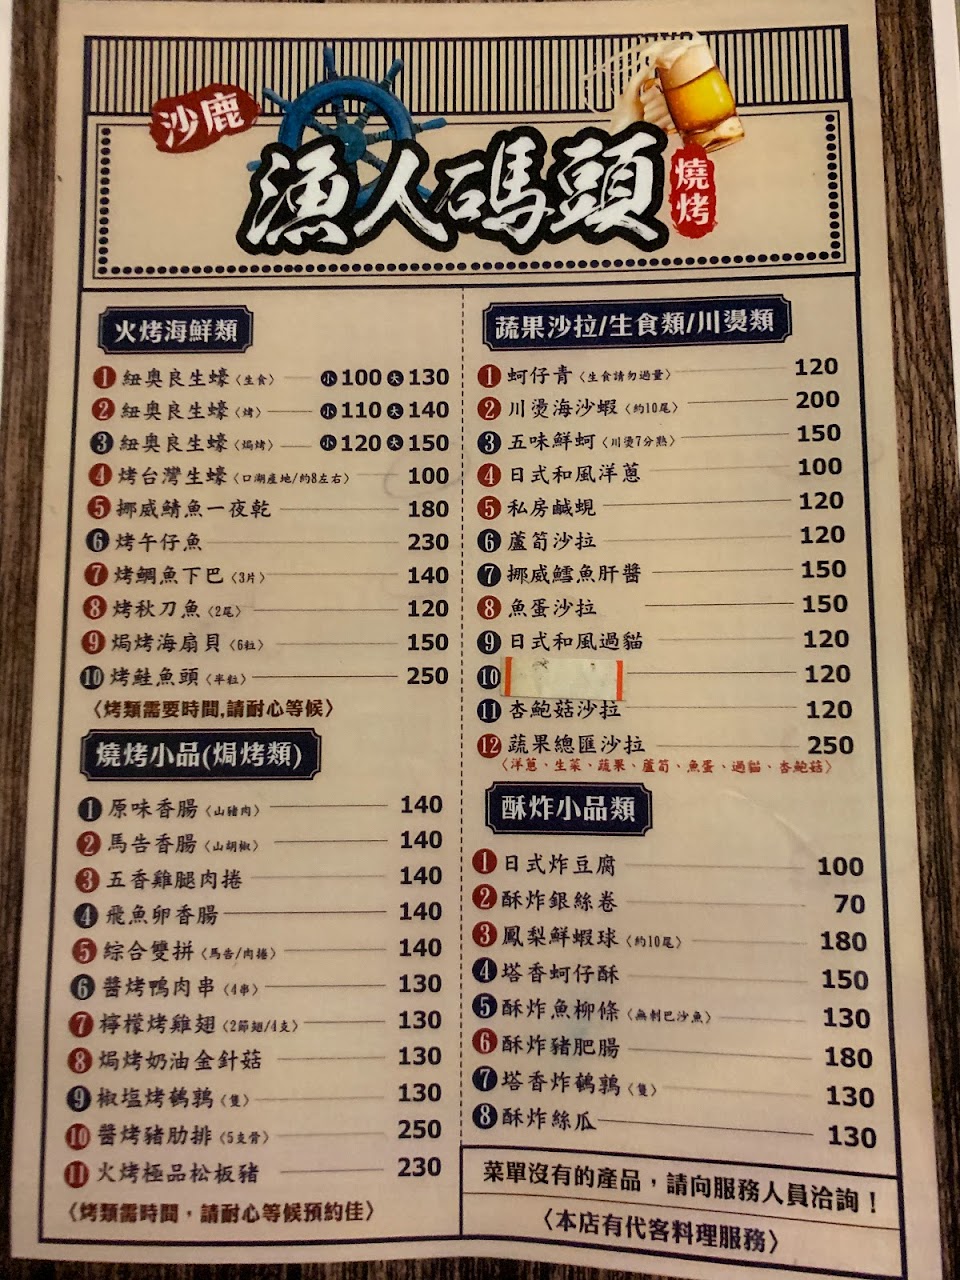 沙鹿
漁人碼頭
燒烤
火烤海鮮類
1 紐奧良生蠔〈生食〉 小100 大130
2 紐奧良生蠔〈烤〉 小110 大140
3 紐奧良生蠔〈焗烤〉 小120 大150
4 烤台灣生蠔〈口湖產地/約8左右〉 100
5 挪威鯖魚一夜乾 180
6 烤午仔魚 230
7 烤鯛魚下巴〈3片〉 140
8 烤秋刀魚〈2尾〉 120
9 焗烤海扇貝〈6粒〉 150
10 烤鮭魚頭〈半粒〉 250
〈烤類需要時間,請耐心等候〉
燒烤小品(焗烤類)
1 原味香腸〈山豬肉〉 140
2 馬告香腸〈山胡椒〉 140
3 五香雞腿肉捲 140
4 飛魚卵香腸 140
5 綜合雙拼〈馬告/肉捲〉 140
6 醬烤鴨肉串〈4串〉 130
7 檸檬烤雞翅〈2節翅/4支〉 130
8 焗烤奶油金針菇 130
9 椒塩烤鵪鶉〈隻〉 130
10 醬烤豬肋排〈5支骨〉 250
11 火烤極品松板豬 230
〈烤類需時間，請耐心等候預約佳〉
蔬果沙拉/生食類/川燙類
1 蚵仔青〈生食請勿過量〉 120
2 川燙海沙蝦〈約10尾〉 200
3 五味鮮蚵〈川燙7分熟〉 150
4 日式和風洋蔥 100
5 私房鹹蜆 120
6 蘆筍沙拉 120
7 挪威鱈魚肝醬 150
8 魚蛋沙拉 150
9 日式和風過貓 120
10 120
11 杏鮑菇沙拉 120
12 蔬果總匯沙拉 250
〈洋蔥、生菜、蔬果、蘆筍、魚蛋、過貓、杏鮑菇〉
酥炸小品類
1 日式炸豆腐 100
2 酥炸銀絲卷 70
3 鳳梨鮮蝦球〈約10尾〉 180
4 塔香蚵仔酥 150
5 酥炸魚柳條〈無刺巴沙魚〉 130
6 酥炸豬肥腸 180
7 塔香炸鵪鶉〈隻〉 130
8 酥炸絲瓜 130
菜單沒有的產品，請向服務人員洽詢！
〈本店有代客料理服務〉